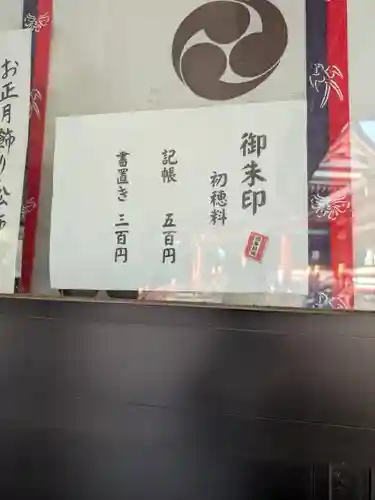 御朱印
初穂料
記帳 五百円
書置き 三百円
お正月飾り